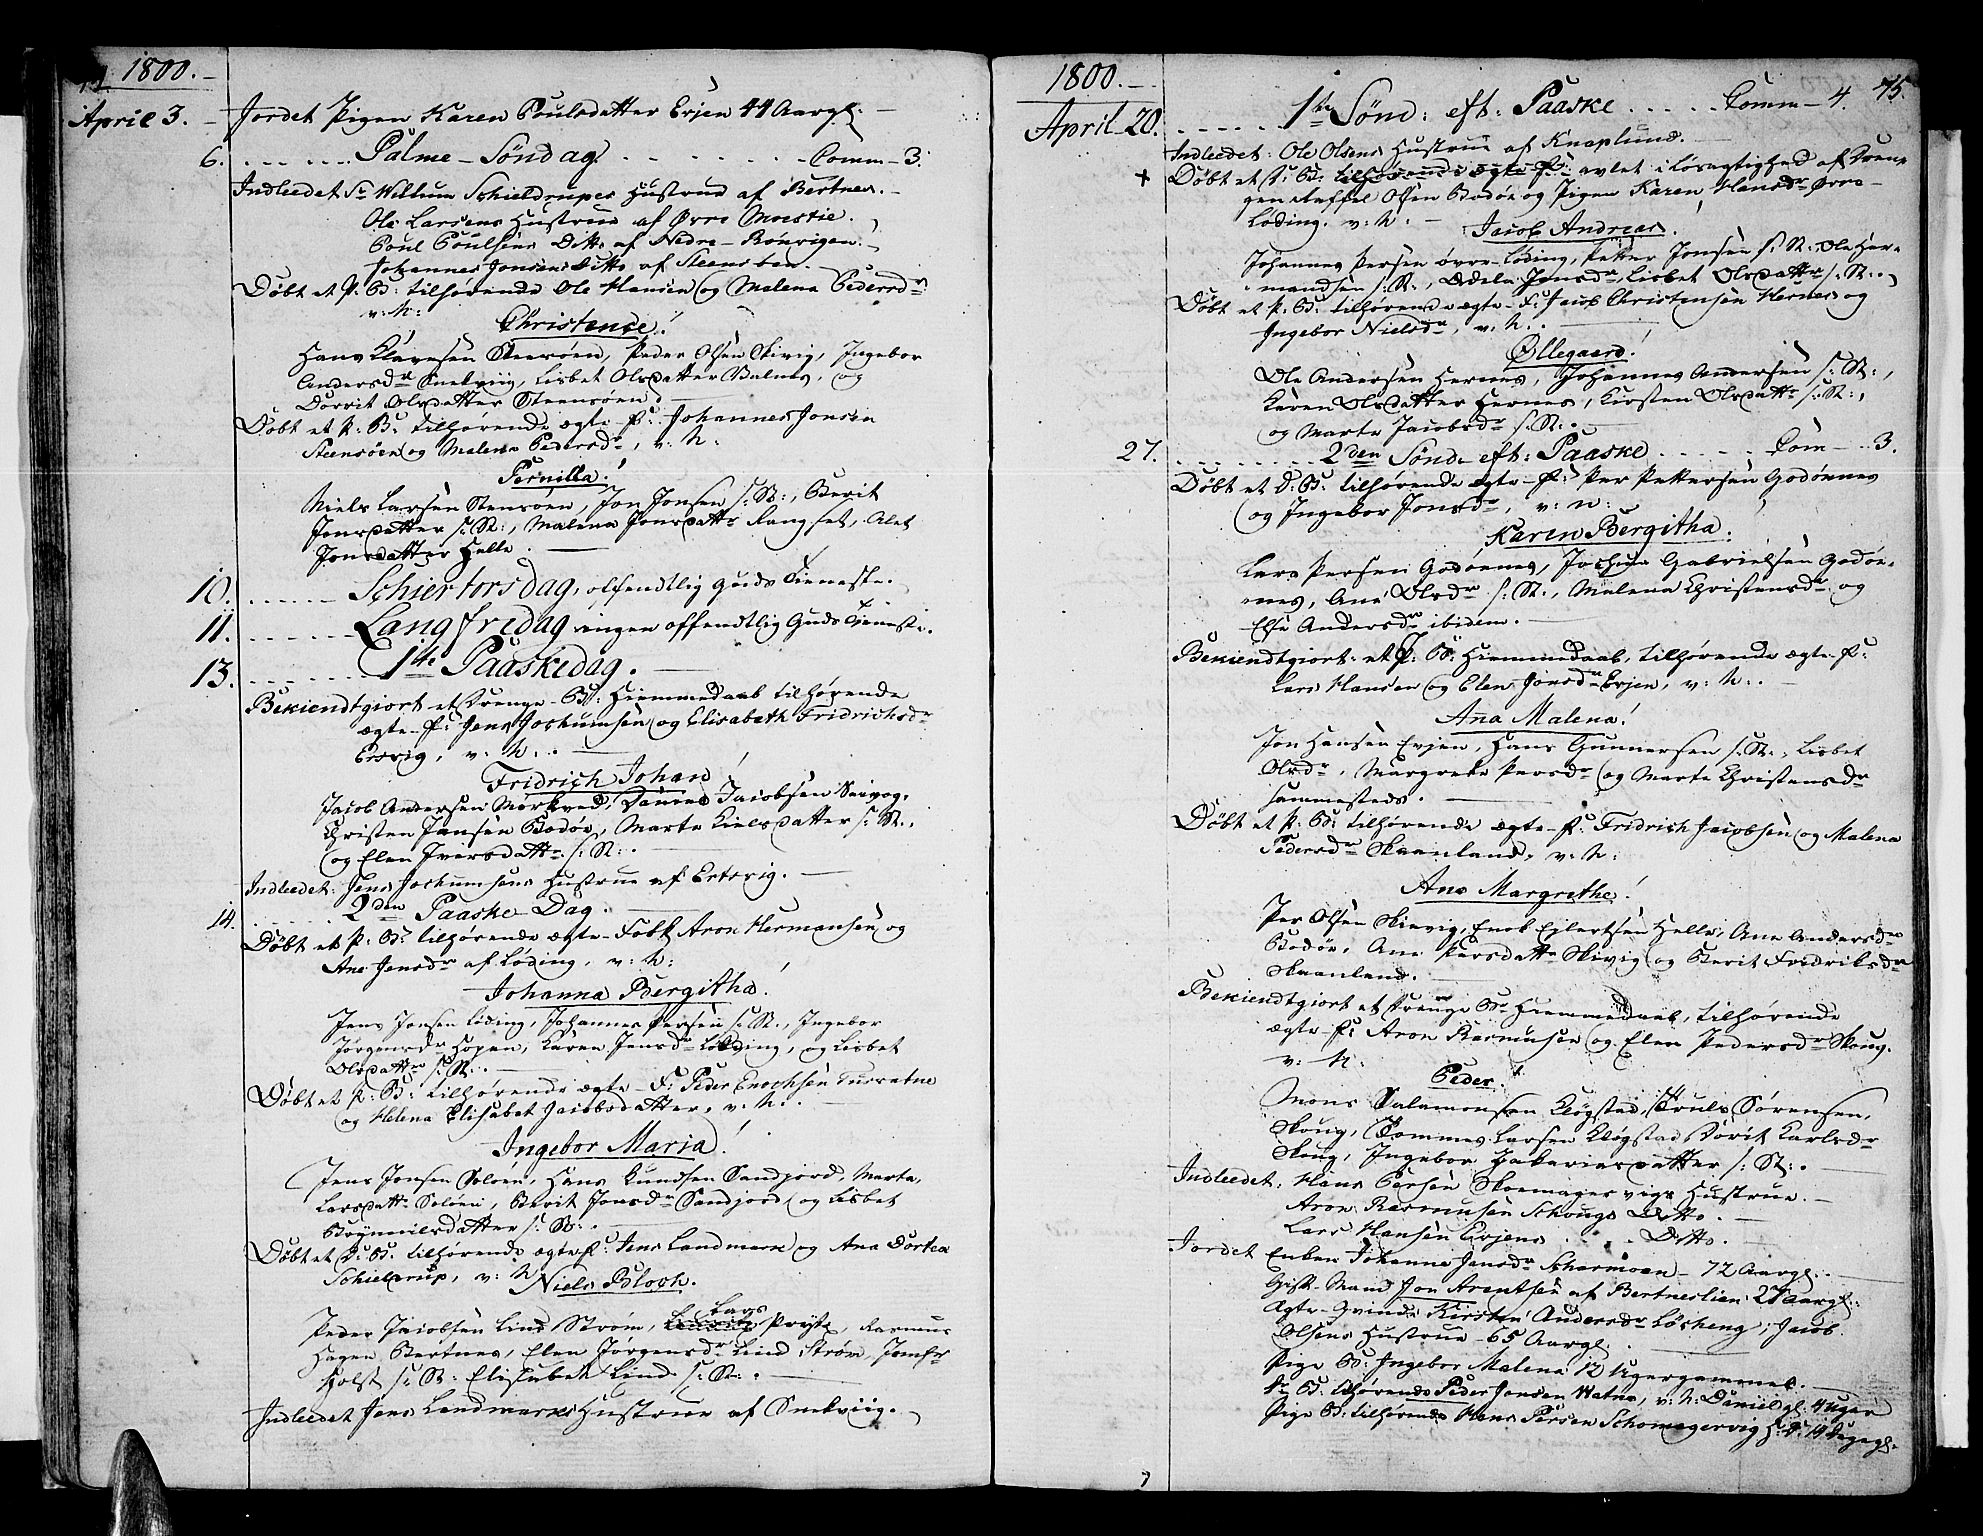 74 1800.
April 3. Jordet Pigen Karen Poulsdatter Evjen 44 Aargl.
6. Palme-Søndag. Comm-3.
Indleedet Sr Willum Schieldrupes Hustrue af Bertnes.
Ole Larsens Hustrue af Øvre Moestie.
Poul Poulsens Ditto af Nedre-Rönvigen.
Johannes Jonsens Ditto af Steensöen.
Döbt et P: B: tilhørende Ole Hansen og Malena Pedersdr
v: N:
Christence!
Hans Klavesen Steesöen, Peder Olsen Skivig, Ingebor
Andersdr Snekviig, Lisbet Olsdatter Valnes, og
Dorrit Olsdatter Steensöen.
Döbt et P: B: tilhørende ægte-F: Johannes Jonsen
Steensöen og Malena Pedersdr, v: N:
Pernilla!
Niels Larsen Stensöen, Jon Jonsen s: St:, Berit
Jonsdatter s: St:, Malena Jonsdattr Langset, Alet
Jonsdatter Helle.
10. Schiertorsdag, offendtlig Guds Tieneste.
11. Langfredag ingen offendtlig Guds Tieneste.
13. 1te Paaskedag.
Bekiendtgiort et Drenge-B: Hiemmedaab tilhørende
ægte-F: Jens Jochumsen og Elisabeth Fridrichsdr
Ertvig, v: N:.
Fridrich Johan!
Jacob Andersen Mörkved, Daniel Jacobsen Seivog,
Christen Jansen Bodöe, Marte Nielsdatter s: St:,
og Elen Iversdattr s: St:.
Indleedet: Jens Jochumsens Hustrue af Ertvig.
14. 2den Paaske-Dag.
Döbt et P: B: tilhørende ægte-Folk Aron Hermansen og
Ane Jensdr af Löding, v: N:
Johanna Bergitha!
Jens Jonsen Löding, Johannes Persen s: St:, Ingebor
Jörgensdr Hopen, Karen Jensdr Löding, og Lisbet
Olsdattr s: St:.
Döbt et P: B: tilhørende ægte-F: Peder Enochsen Tuvratne
og Helena Elisabet Jacobsdatter, v: N:.
Ingebor Maria!
Jens Jonsen Solöen, Hans Knudsen Sandjord, Marta
Larsdattr Solöen, Berit Jonsdr Sandjord og Lisbet
Brynnilsdatter s: St:.
Döbt et D: B: tilhørende ægte-F: Jens Landmark og Ana Dortea
Schieldrup, v: N: Niels Bloch.
Peder Jacobsen Lind Ström, Lars Pryts, Rasmus
Hagen Bertnes, Elen Jörgensdr Lind Ström, Jomfr
Holst s: St: Elisabet Lind s: St:.
Indleedet Jens Landmarks Hustrue af Snekviig.
1800. 75
April 20. 1te Sönd: eft: Paaske Comm-4.
Indleedet: Ole Olsens Hustrue af Knaplund.
+ Döbt et D: B: tilhørende ægte F: avlet i Løsagtighed af Dren-
gen Raffel Olsen Bodöe og Pigen Karen Hansdr Øvre-
Löding. v: N:
Jacob Andreas!
Johannes Persen övre-Löding, Petter Jonsen s: St: Ole Her-
mandsen s: St:, Edele Jonsdr, Lisbet Olsdattr s: St:.
Döbt et P: B: tilhørende ægte-F: Jacob Christensen Hernes og
Ingebor Nielsdr, v: N:.
Øllegaard!
Ole Andersen Hernes, Johannes Andersen s: St:,
Karen Olsdatter Hernes, Kirsten Olsdattr s: St:,
og Marte Jacobsdr s: St:.
27. 2den Sönd: eft: Paaske Com-3.
Döbt et P: B: tilhørende ægte-F: Per Pettersen Godönnes
og Ingebor Jonsdr, v: N:
Karen Bergitha.
Lars Persen Godönnes, Jochum Gabrielsen Godön-
nes, Ane Olsdr s: St:, Malena Christensdr og
Else Andersdr ibidem.
Bekiendtgiort: et P: B: Hiemmedaab, tilhørende ægte-F:
Lars Hansen og Elen Jonsdr Evjen, v: N:.
Ana Malena!
Jon Hansen Evjen, Hans Gunnersen s: St:, Lisbet
Olsdr, Margrete Persdr og Marte Christensdr
sammesteds.
Döbt et P: B: tilhørende ægte-F: Fridrich Jacobsen og Malena
Pedersdr Skaanland, v: N:
Ane Margrethe!
Per Olsen Skivig, Enok Eilertsen Helle, Ane Andersdr
Bodöe, Ane Persdattr Skivig og Berit Fridriksdr
Skaanland.
Bekiendtgiort et Drenge B: Hiemmedaab, tilhørende
ægte-F: Aron Rasmusen og Elen Pedersdr Skoug.
v: N:
Peder!
Mons Salamonsen Klögstad, Truls Sörensen
Skoug, Tommes Larsen Klögstad Dorit Karlsdr
Skoug, Ingebor Zakariasdatter s: St:.
Indleedet: Hans Persen Skomagervigs Hustrue.
Aron Rasmusen Schougs Ditto.
Lars Hansen Evjens Ditto.
Jordet Enken Johanna Jensdr Scharmoen-72 Aargl.
Gift-Mand Jon Arentsen af Bertneslien 27 Aargl:
Ægte-Qvinde Kirsten Andersdr Løsheng, Jacob
Olsens Hustrue-65 Aargl.
Pige B: Ingebor Malena 12 Ugergammel.
Dr: B: tilhörende Peder Jonsen Watne, v: N: Daniel gl. 4 uger
Pige B: tilhörende Hans Persen Schomagervig H: D: 14 Dagegl.